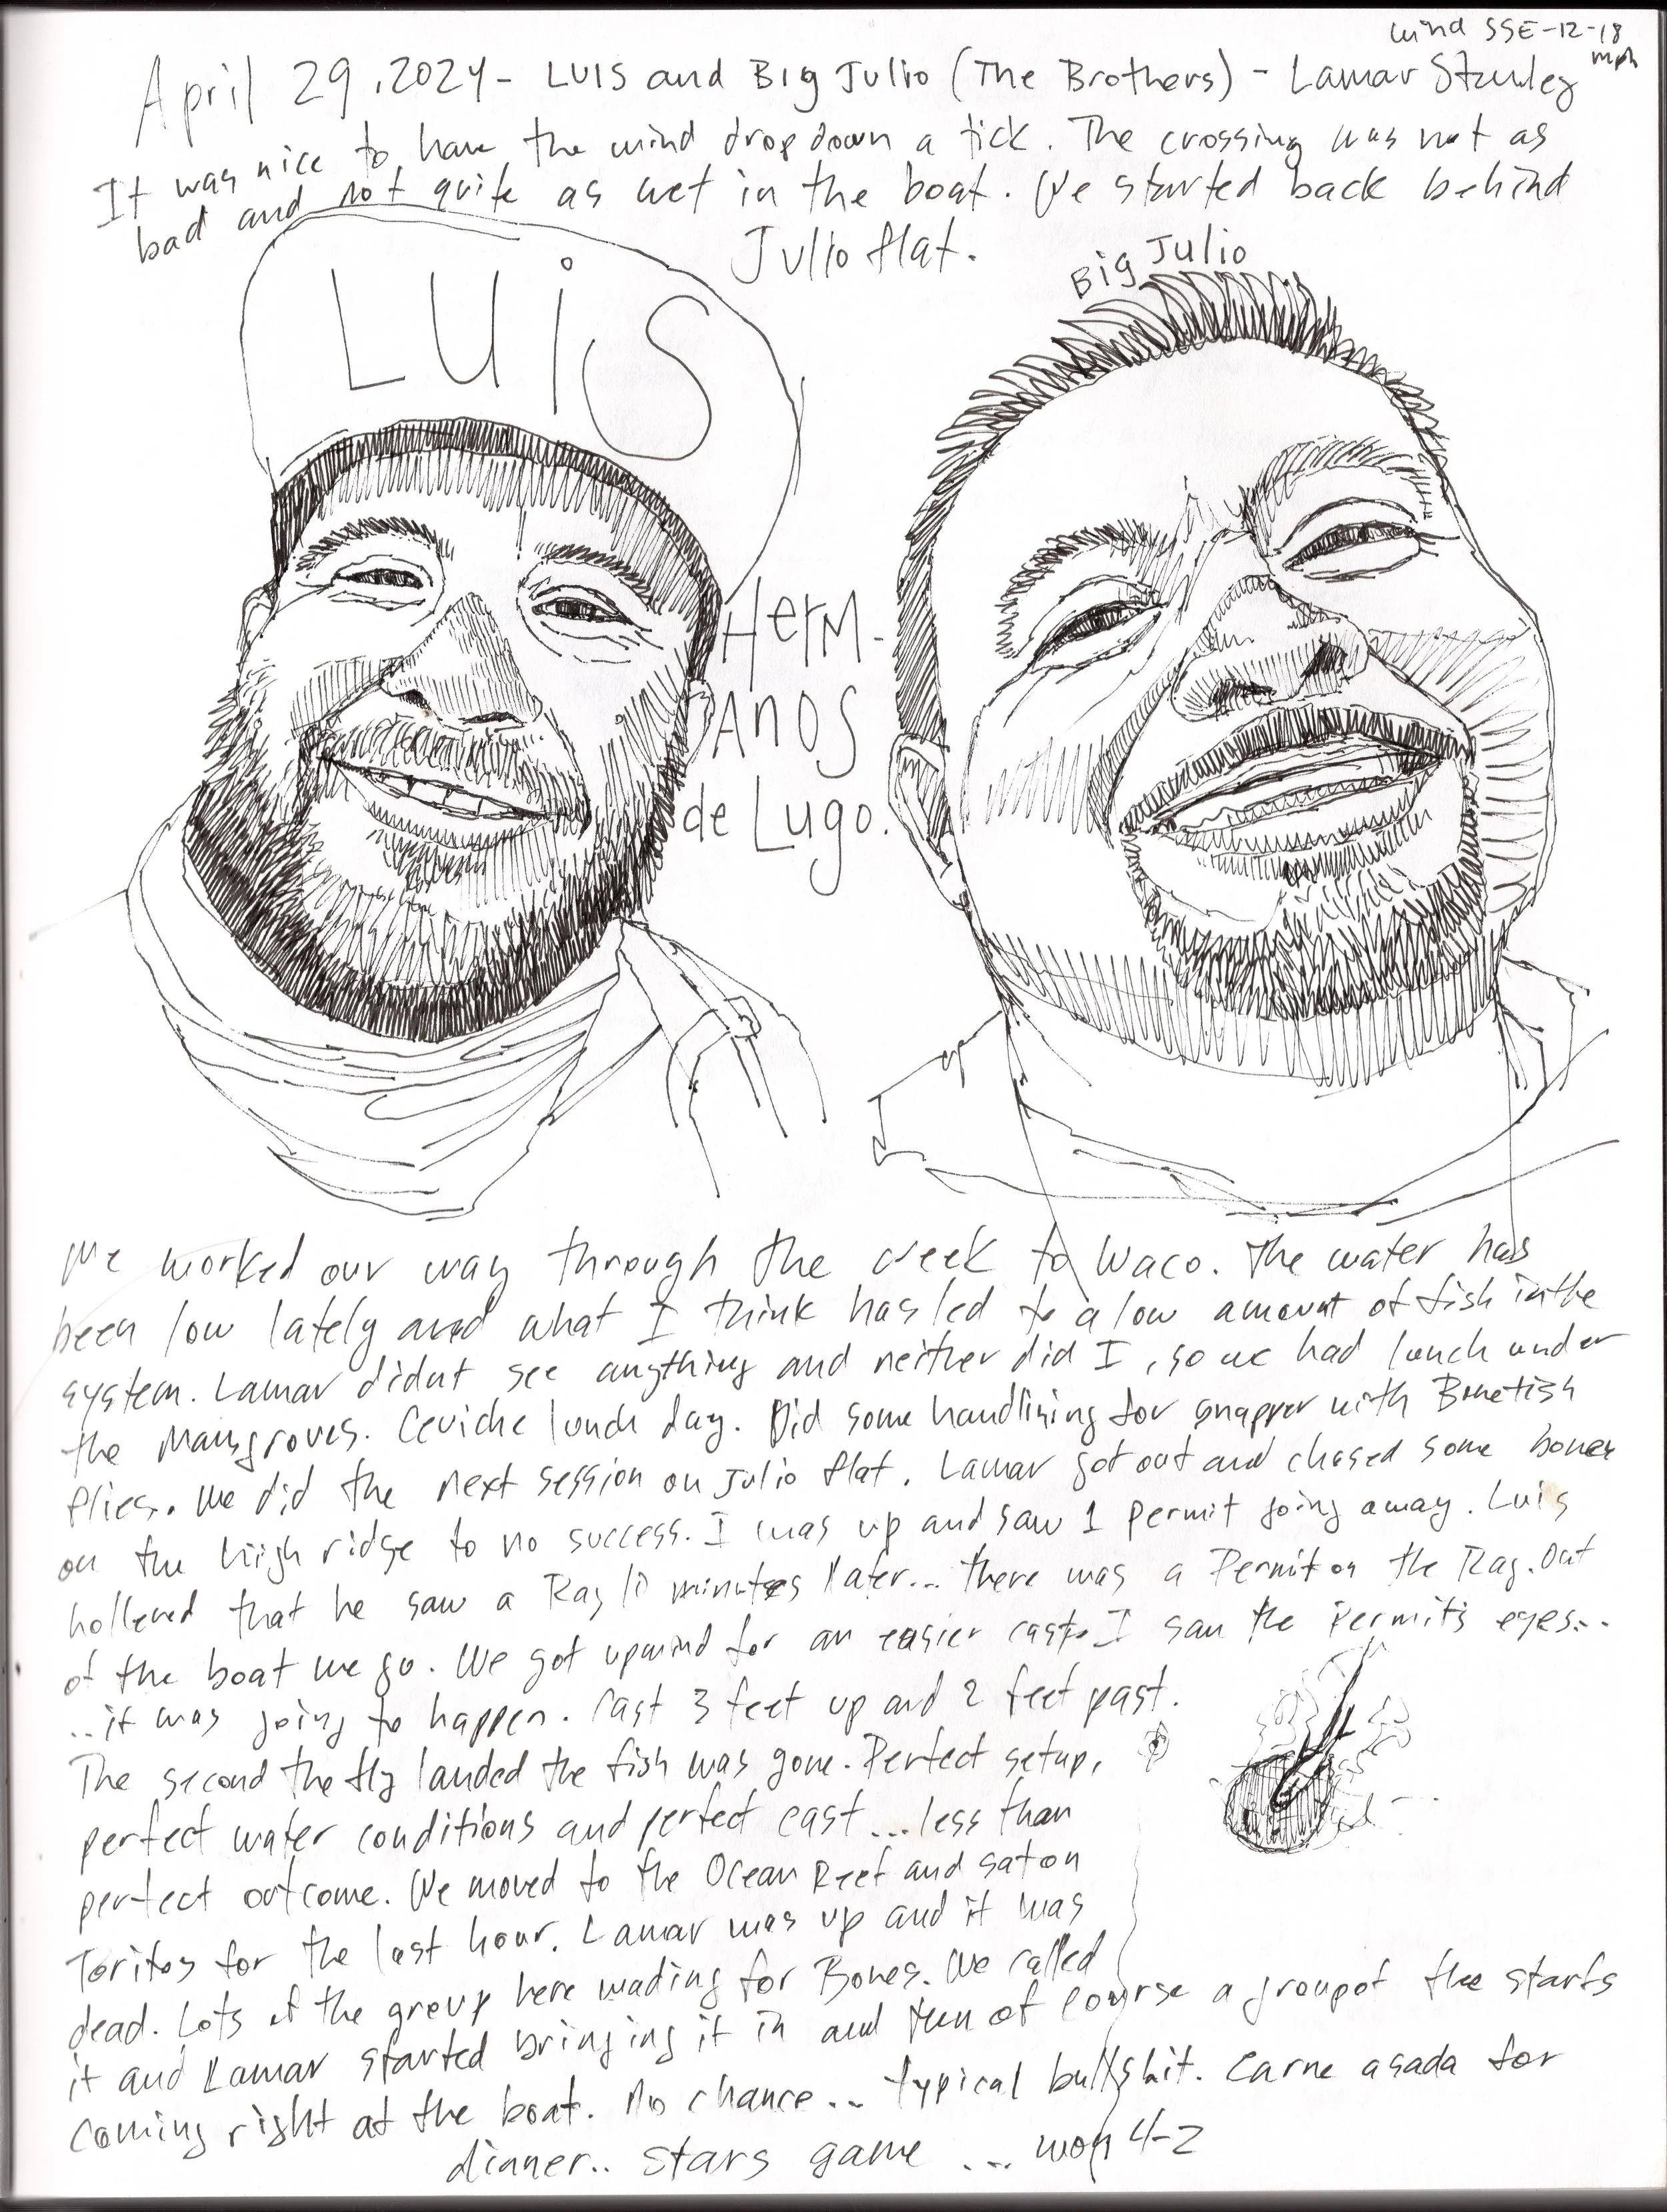 wind SSE-12-18
mph
April 29, 2024- LUIS and Big Julio (The Brothers) - Lamar Stanley
It was nice to have the wind drop down a tick. The crossing was not as
bad and not quite as wet in the boat. We started back behind
Julio flat.
Big Julio
LUiS
HerM-
Anos
de Lugo.
We worked our way through the creek to Waco. The water has
been low lately and what I think has led to a low amount of fish in the
system. Lamar didnt see anything and neither did I, so we had lunch under
the Mangroves. Ceviche lunch day. Did some handlining for snapper with Bonefish
flies. We did the next session on Julio flat. Lamar got out and chased some bones
on the high ridge to no success. I was up and saw 1 permit going away. Luis
hollered that he saw a Ray 10 minutes later... there was a Permit on the Ray. Out
of the boat we go. We got upwind for an easier cast. I saw the Permits eyes...
..it was going to happen. Cast 3 feet up and 2 feet past.
The second the fly landed the fish was gone. Perfect setup,
perfect water conditions and perfect cast...less than
perfect outcome. We moved to the Ocean Reef and sat on
Toritos for the last hour. Lamar was up and it was
dead. Lots of the group here wading for Bones. We called
it and Lamar started bringing it in and then of course a group of the
coming right at the boat. No chance... typical bullshit. Carne asada for
dinner.. stars game ... won 4-2